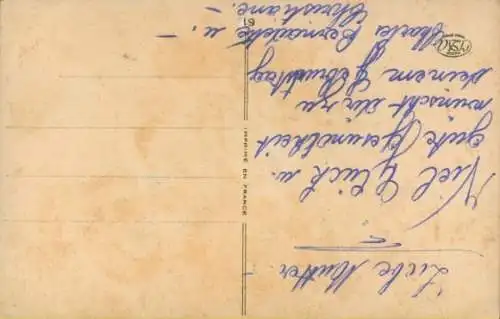 Liebe Mutter –
Viel Glück u.
gute Gesundheit
wünscht dir zu
deinem Geburtstag
Bernadette u. –
Christiane. –
IMPRIMÉ EN FRANCE
61